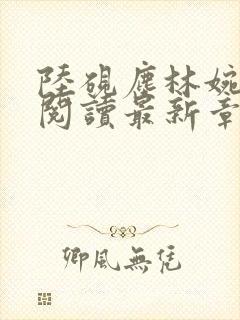 陸硯塵林婉
閱讀最新章
卿風無凭